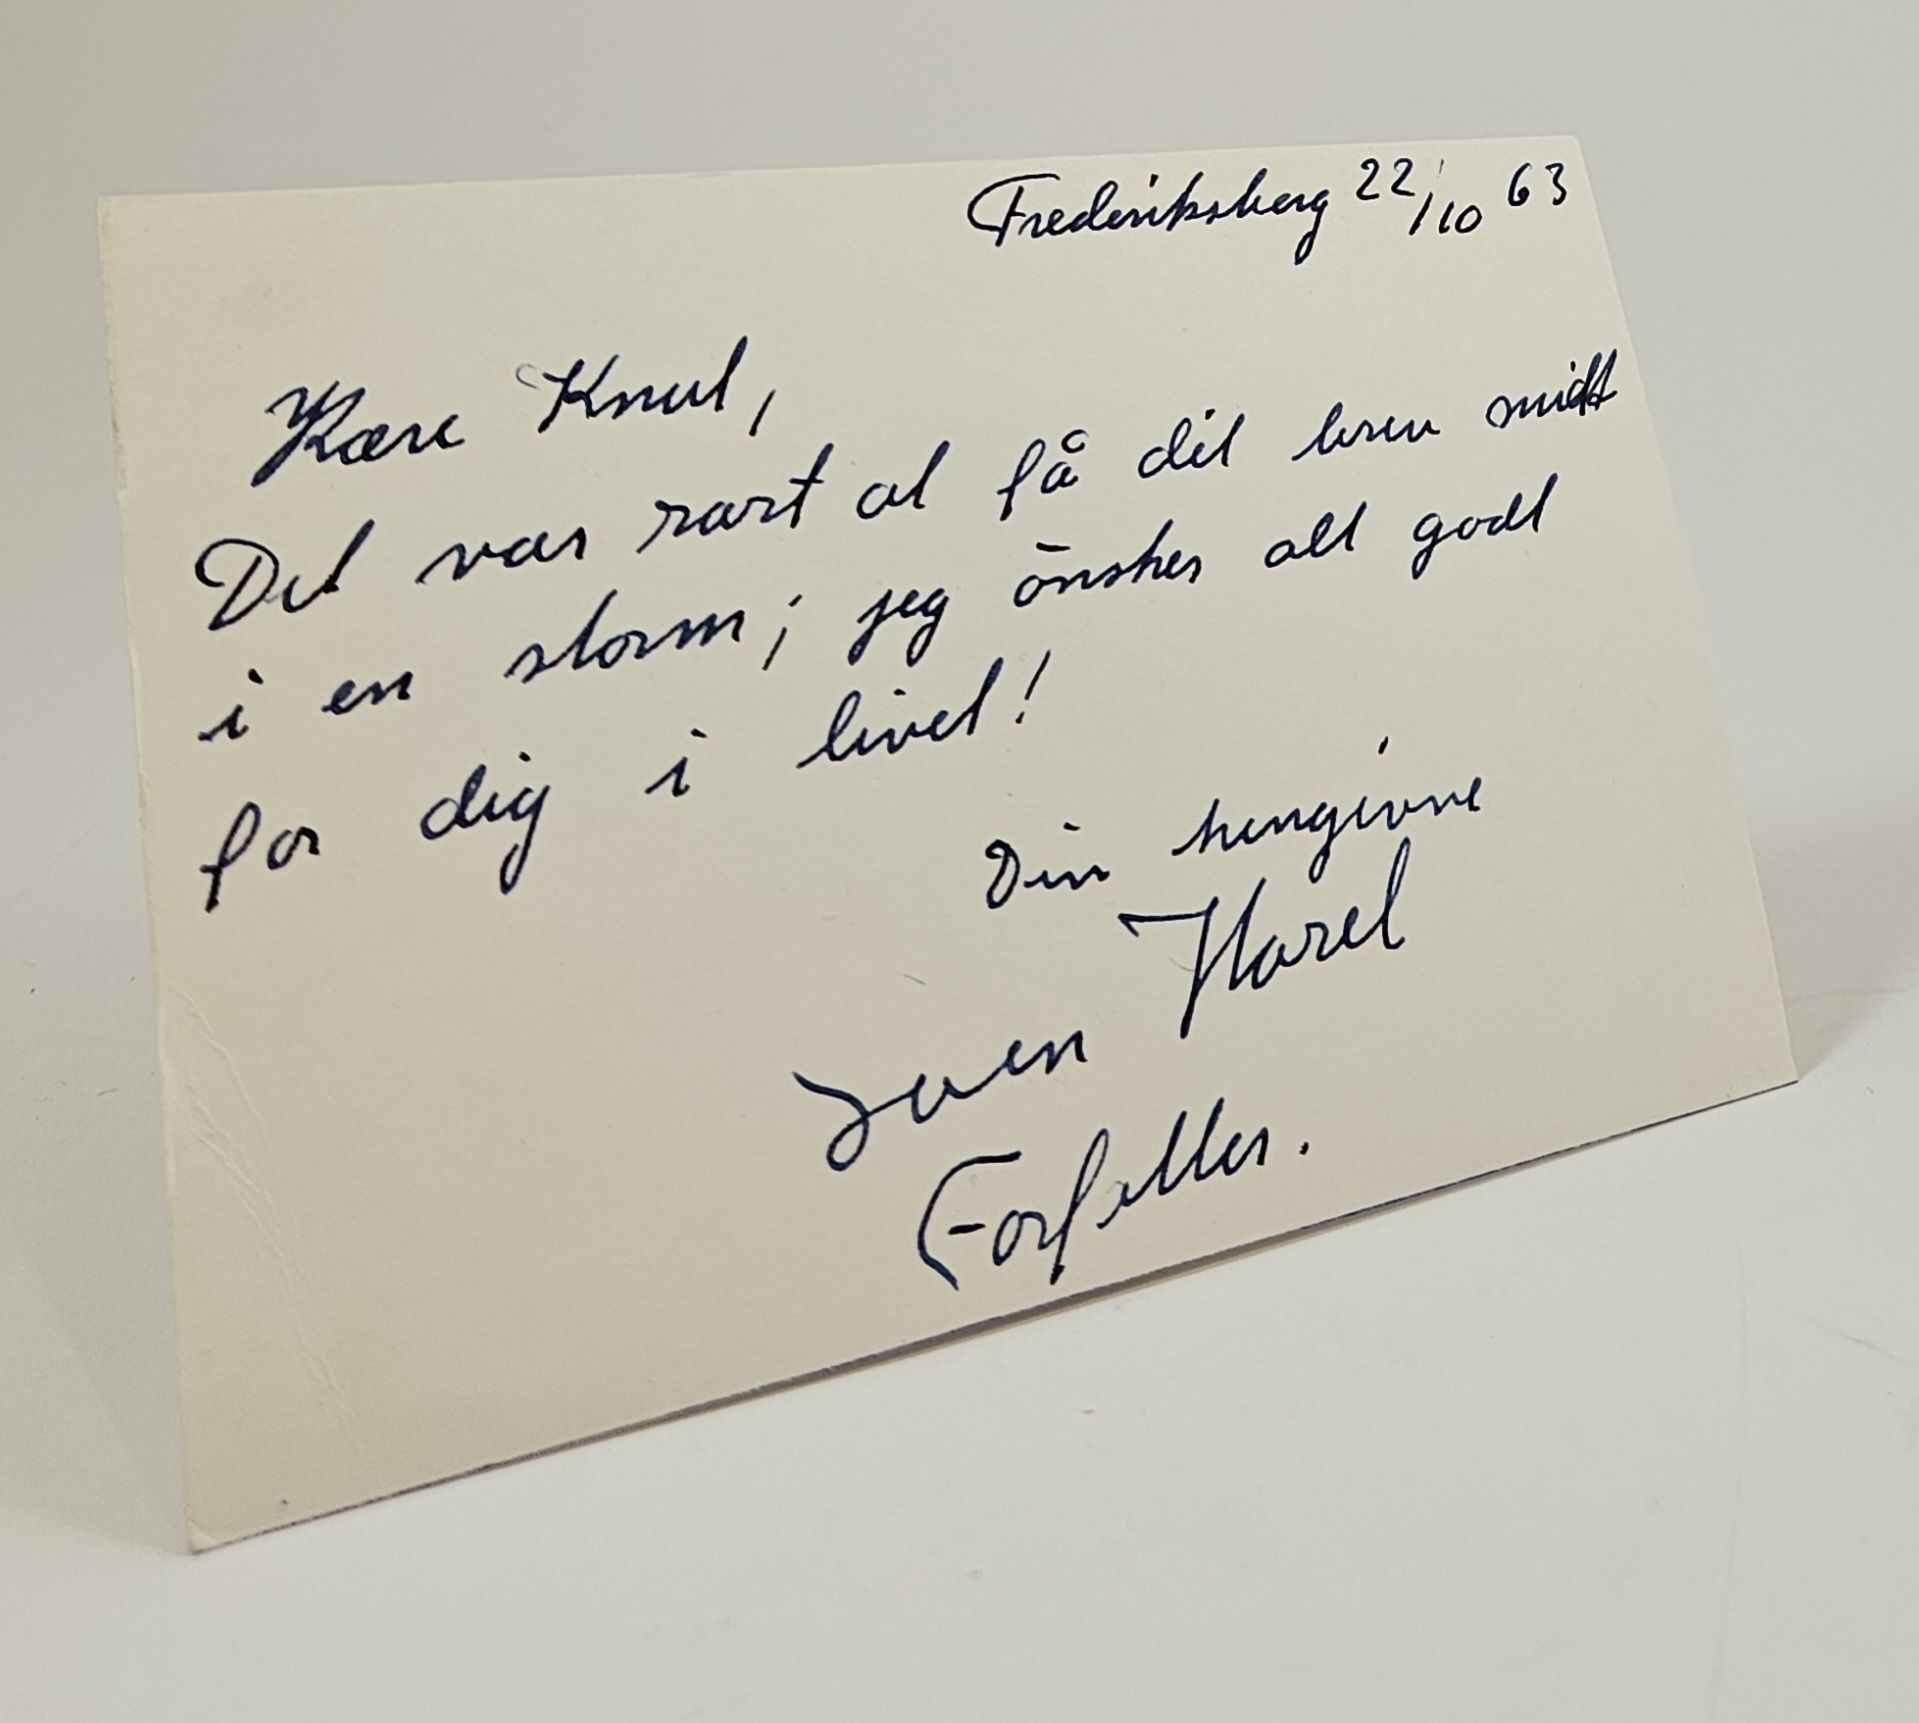 Frederiksberg 22/10 63
Kære Knud,
Det var rart at få dit brev midt
i en storm; jeg önsker alt godt
for dig i livet!
Din hengivne
Sven
Forfatter.